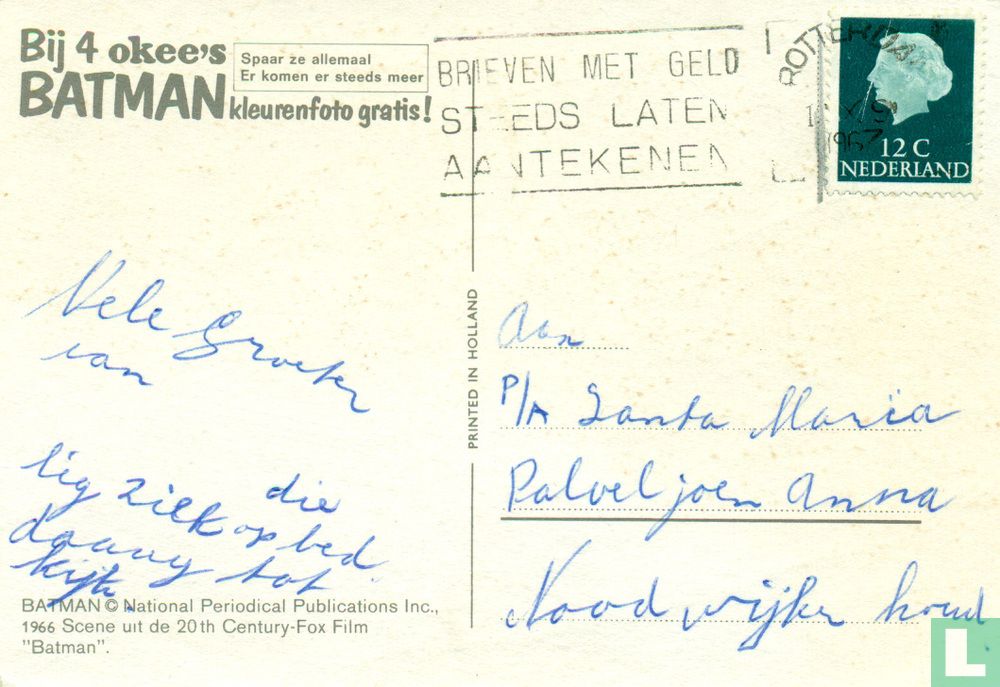 Bij 4 okee's
BATMAN
kleurenfoto gratis!
Spaar ze allemaal
Er komen er steeds meer
BRIEVEN MET GELD
STEEDS LATEN
AANTEKENEN
ROTTERDAM
1967
12 C
NEDERLAND
Vele Groeten
van
die
lig ziek op bed.
tot
kijk.
PRINTED IN HOLLAND
Aan
P/A Santa Maria
Palveljoen Anna
Noodwijker houd
BATMAN © National Periodical Publications Inc.,
1966 Scene uit de 20th Century-Fox Film
"Batman".
L